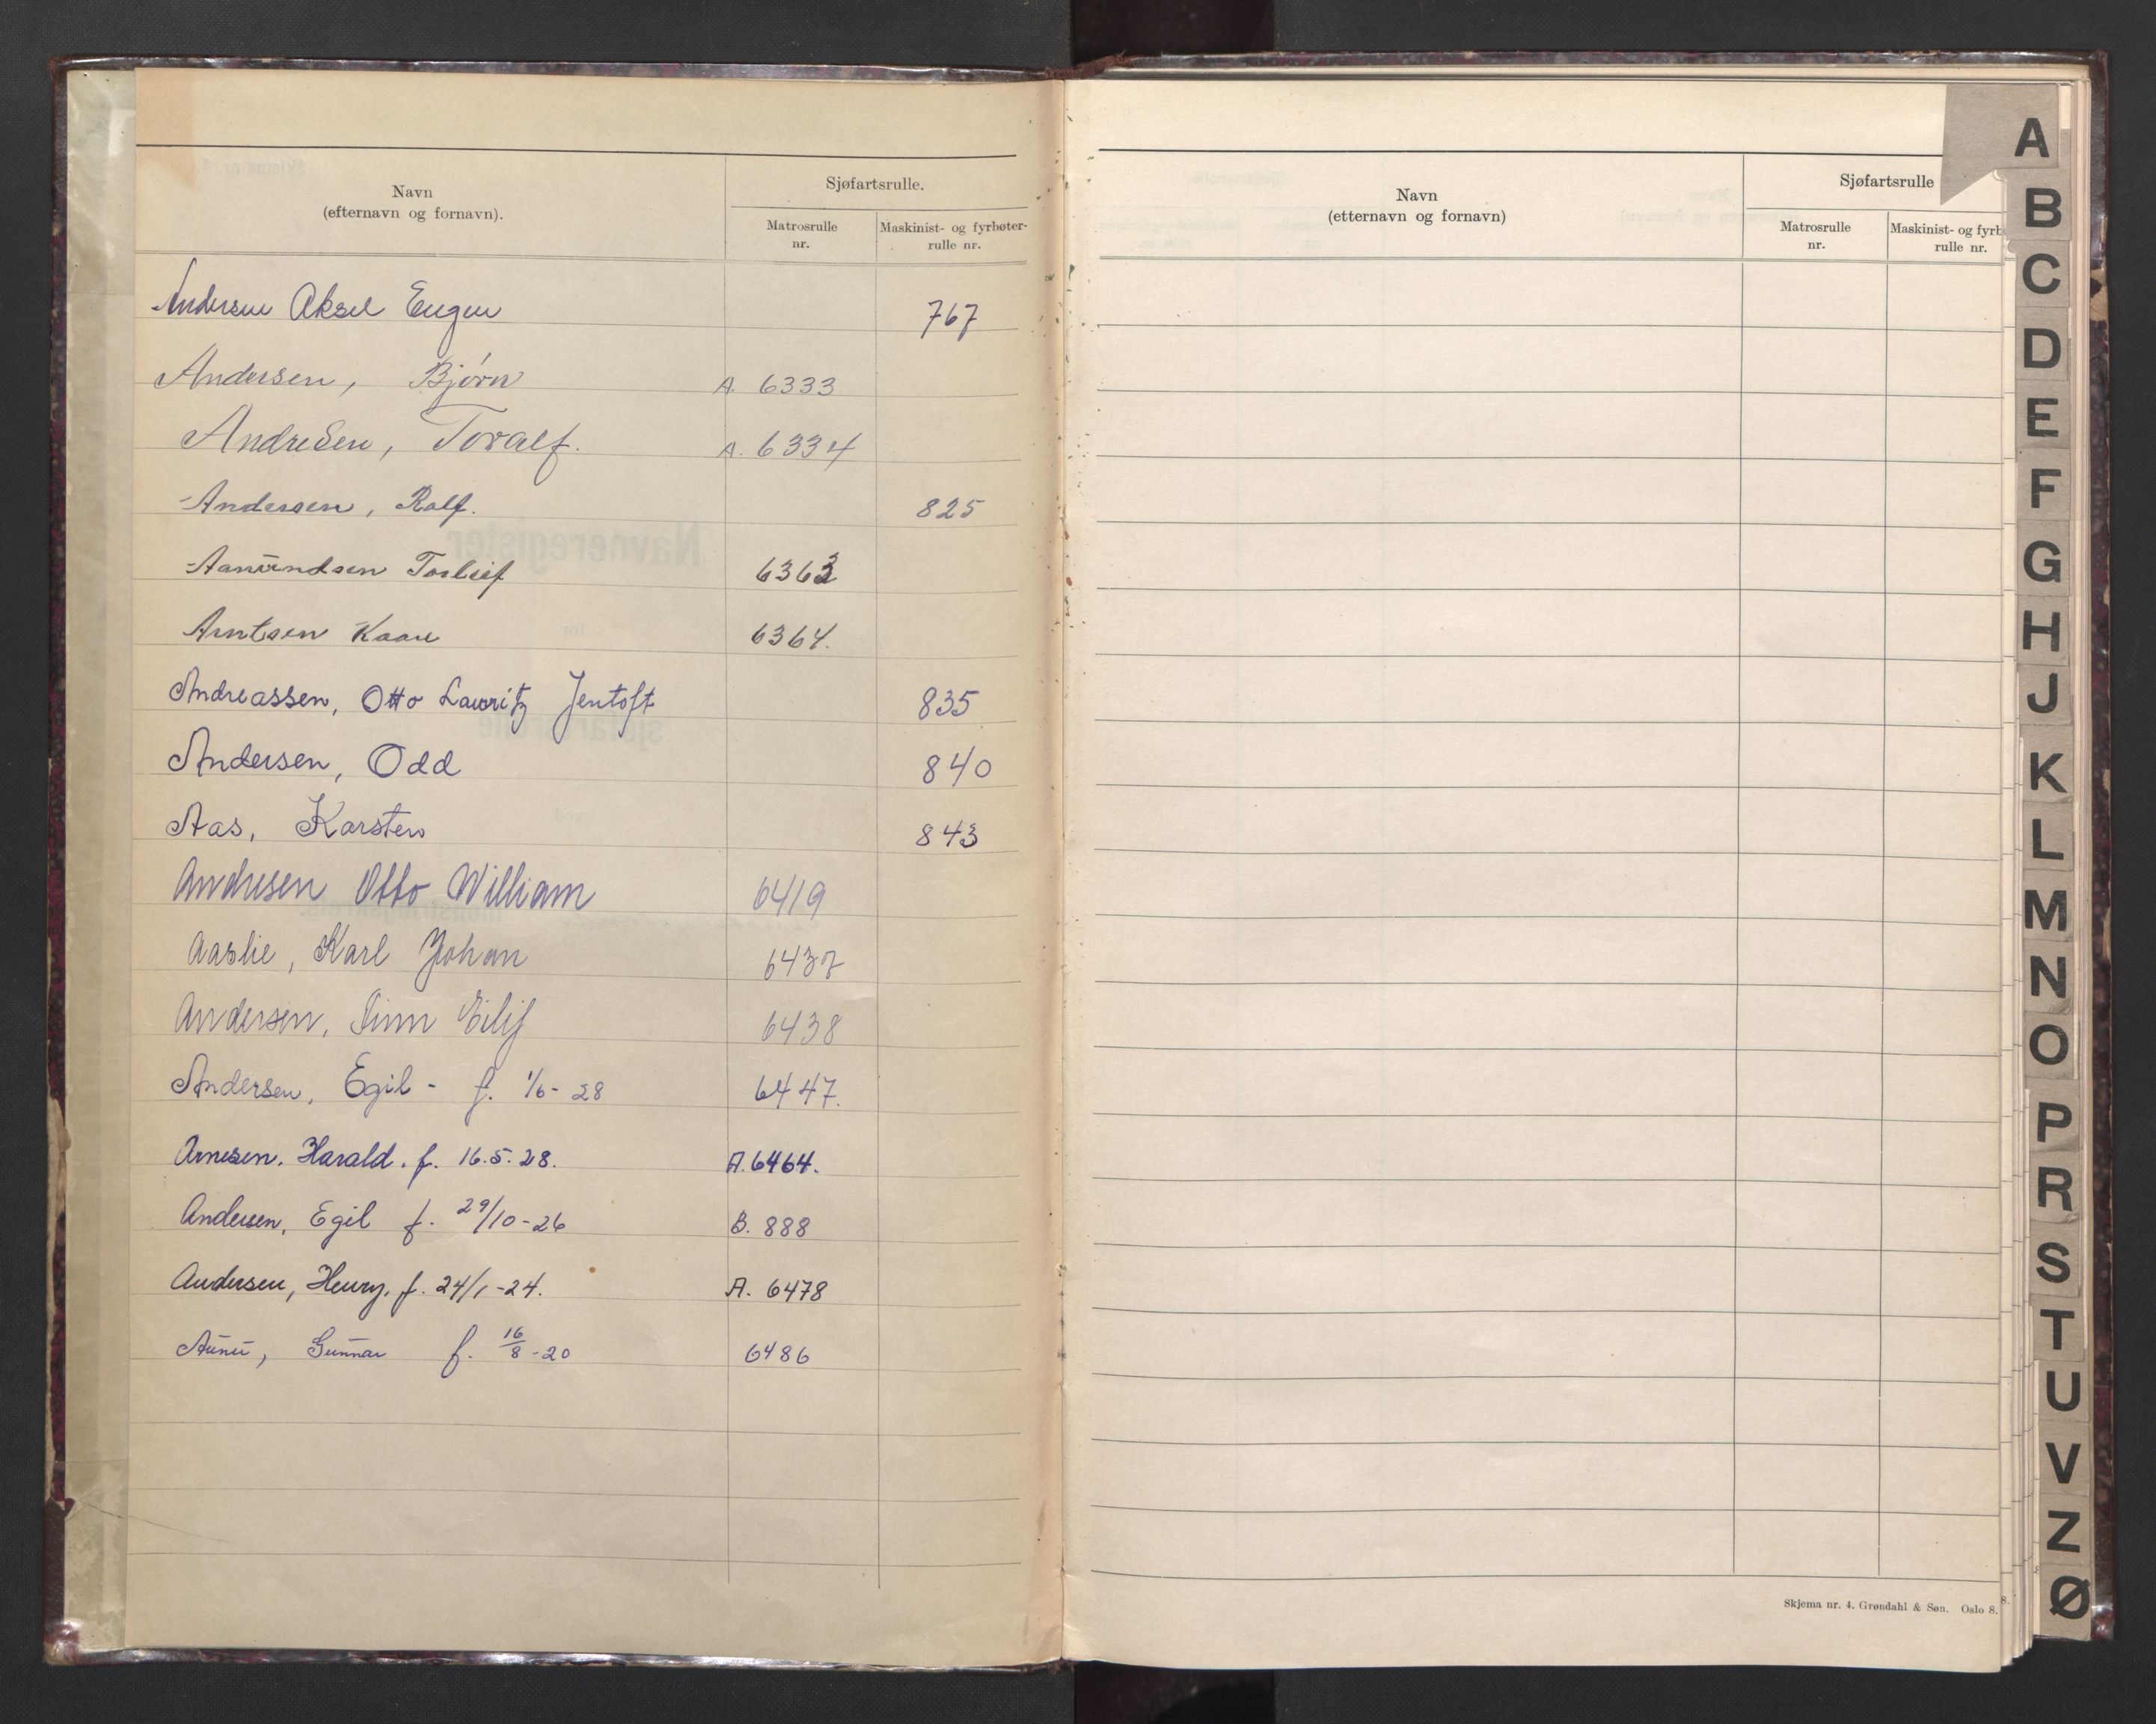 Navn
(efternavn og fornavn).
Sjøfartsrulle.
Matrosrulle
nr.
Maskinist- og fyrbøter-
rulle nr.
Andersen Aksel Eugen 767
Andersen, Bjørn A. 6333
Andresen, Toralf. A. 6334
Andersen, Rolf. 825
Aamundsen Torleif 6363
Arntsen Kaare 6364.
Andreassen, Otto Lauritz Jentoft 835
Andersen, Odd 840
Aas, Karsten 843
Andresen Otto William 6419
Aaslie, Karl Johan 6437
Andersen, Finn Eilif 6438
Andersen, Egil - f. 1/6 - 28 6447.
Arnesen. Harald. f. 16.5.28. A. 6464.
Andersen, Egil f. 29/10-26 B. 888
Andersen, Henry. f. 24/1-24. A. 6478
Gunnar f. 16/8-20 6486
Navn
(etternavn og fornavn)
Sjøfartsrulle
Matrosrulle
nr.
Maskinist- og fyrb
rulle nr.
Skjema nr. 4. Grøndahl & Søn. Oslo 8.
A
B
C
D
E
F
G
H
J
K
L
M
N
O
P
R
S
T
U
V
Z
Ø